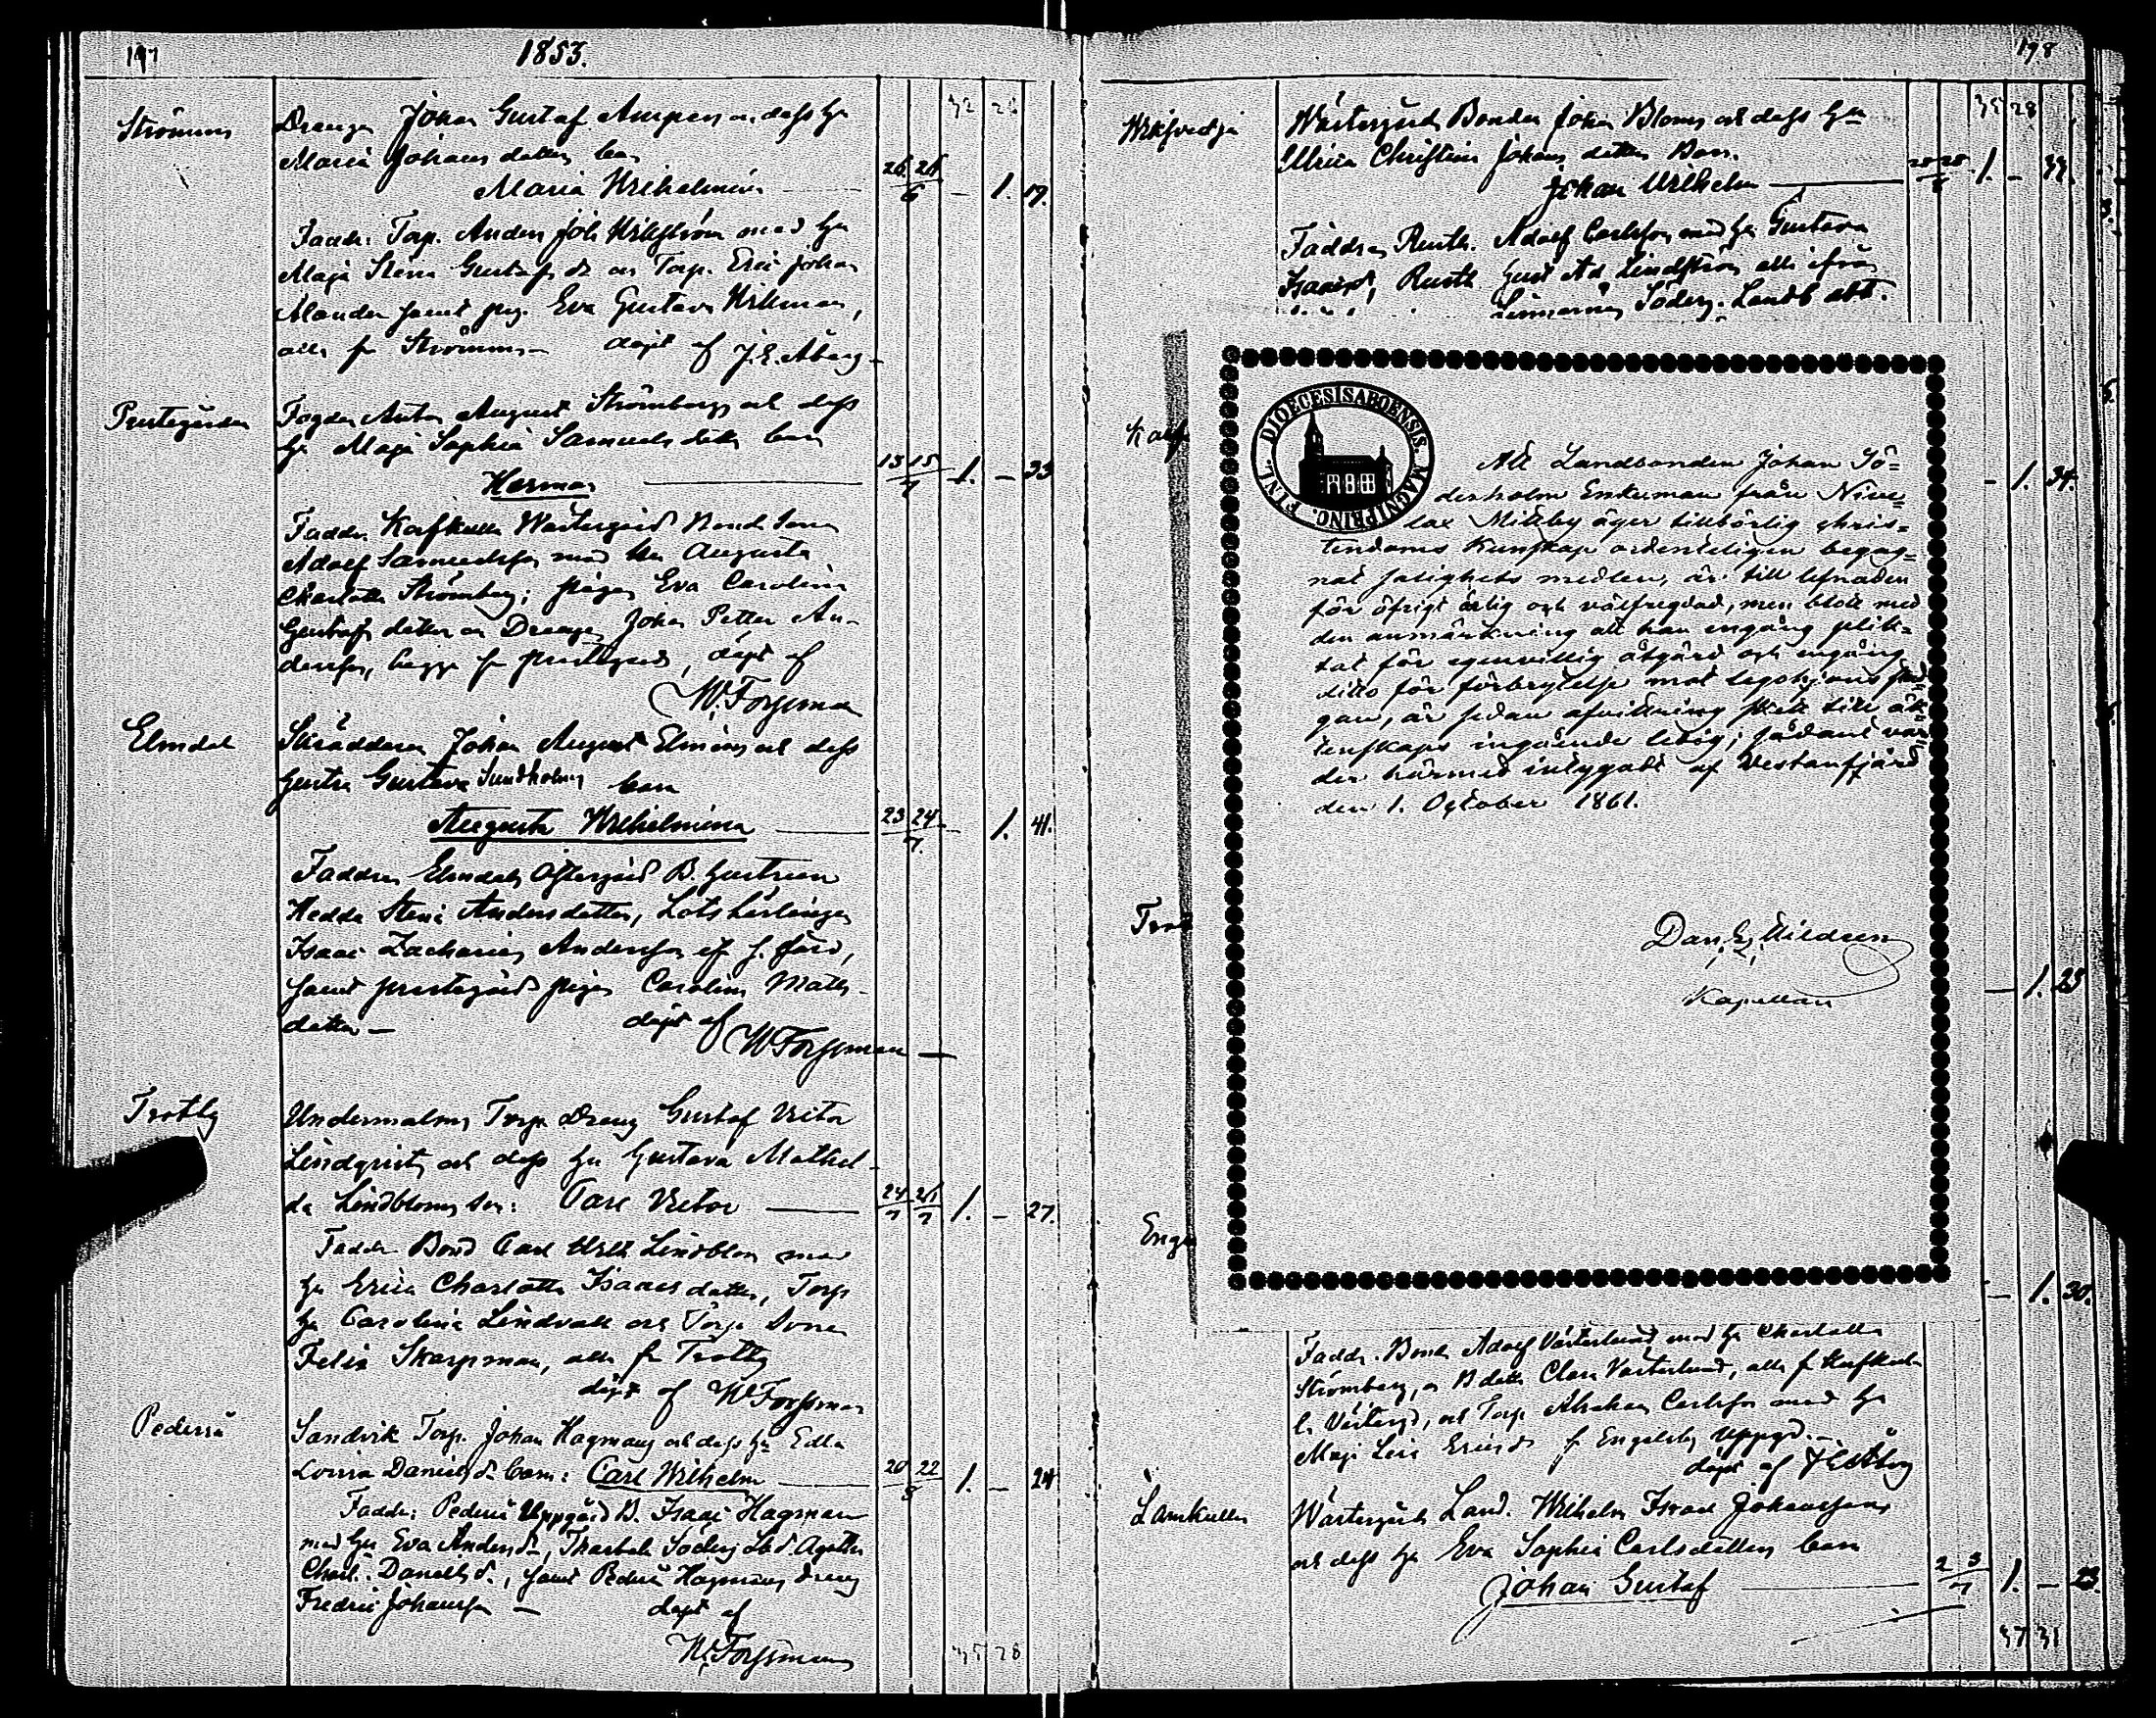 197
1853.
Strömma
Drengen Johan Gustaf
Maria Johansdotter barn
Maria Wilhelmina
26 26
6
1. 19.
Fadd: Torp. Anders Joh Wikström med hu
Maja Stena Gustafs dr o Torp. Eric Johan
Alander samt pig. Eva Gustava Willman,
alla fr Strömma döpt af J. E. Åberg
Prestegården
Fogden Anton August Strömberg och dess
hu Maja Sophia Samuels dotter barn
Herman
13 15
7
1. – 33
Fadd. Kafkulla Wästergård Bonde Sonen
Adolf Samuelsson med hu Augusta
Charlotta Strömberg; pigan Eva Carolina
Gustafs dotter o Drengen Johan Petter An-
dersson, begge fr prestegård, döpt af
W. Forssman
Elmdal
Skräddaren Johan August och dess
hustru Gustava Sundholm barn
Augusta Wilhelmina
23 24
7.
1. 41.
Faddra Elmdals Östergård B. hustrun
Hedda Stina Andersdotter, Lots Lärlingen
Isaac Zacharias Andersson
samt prestegård pigan Carolina Matts-
dotter – döpt af
W Forssman –
Trotby
Undermalms Torp. Dreng Gustaf Victor
Lindqvist och dess hu Gustava Mathil-
da Lindblom son: Carl Victor
24 26
7 7
1. – 27.
Fadd. Bond Carl Wilh Lindblom med
hu Erica Charlotta Isaacs dotter, Torp
hu Carolina Lindvall och Torp Sonen
Felix Skarpman, alla fr Trotby
döpt af W. Forssman
Pederså
Sandvik Torp. Johan Hagman och dess hu Edla
Lovisa Daniels dr barn: Carl Wilhelm
20 22
8
1. – 24
Fadd: Pederså Uppgård B. Isaac Hagman
med hu Eva Andersdr,
Charl. Daniels d., samt Pederså Hagmans dreng
Fredric Johansson – döpt af
W. Forssman
35 28
198
35 28
Wästergårds Bonden Johan Blom och dess hu
Ulrica Christina Johans dotter Barn.
Johan Wilhelm
1. – 33
Faddra Rusth. Adolf Carlsson med hu Gustava
Isaacsd, Rusth Gust Ad. Lindström alla ifrån
DIOECESIS ABOENSIS. MAGNI PRINC. FINL.
Att Landbonden Johan Sö=
derholm Enkeman från Nive=
lax Mikkby äger tillbörlig chris=
tendoms kunskap ordenteligen begag=
nat salighets medlen, är till lefnaden
för öfrigt ärlig och välfregdad, men blott med
den anmärkning att han engång plik=
tat för egenvillig åtgärd och engång
ditto för förbrytelse mot legohjons stad=
gan, är sedan afvittring skett till äk=
tenskaps ingående ledig; sådant var=
der härmed intygadt af Vestanfjärd
den 1. October 1861.
Kapellan
– 1. 34.
– 1. 25
Enge
– 1. 30.
Fadd. Bond Adolf Västerlund med hu Charlotta
Strömberg, o B dottr Clara Västerlund, alla fr Kafkul-
la Västergd, och Torp Abraham Carlsson med hu
Maja Lisa Ericsdr fr Engelsby Uppgd. –
döpt af J E Åberg
Lamkulla
Wästergårds Land. Wilhelm Israel Johansson
och dess hu Eva Sophia Carlsdotter barn
Johan Gustaf
2 3
7
1. – 23.
37 31